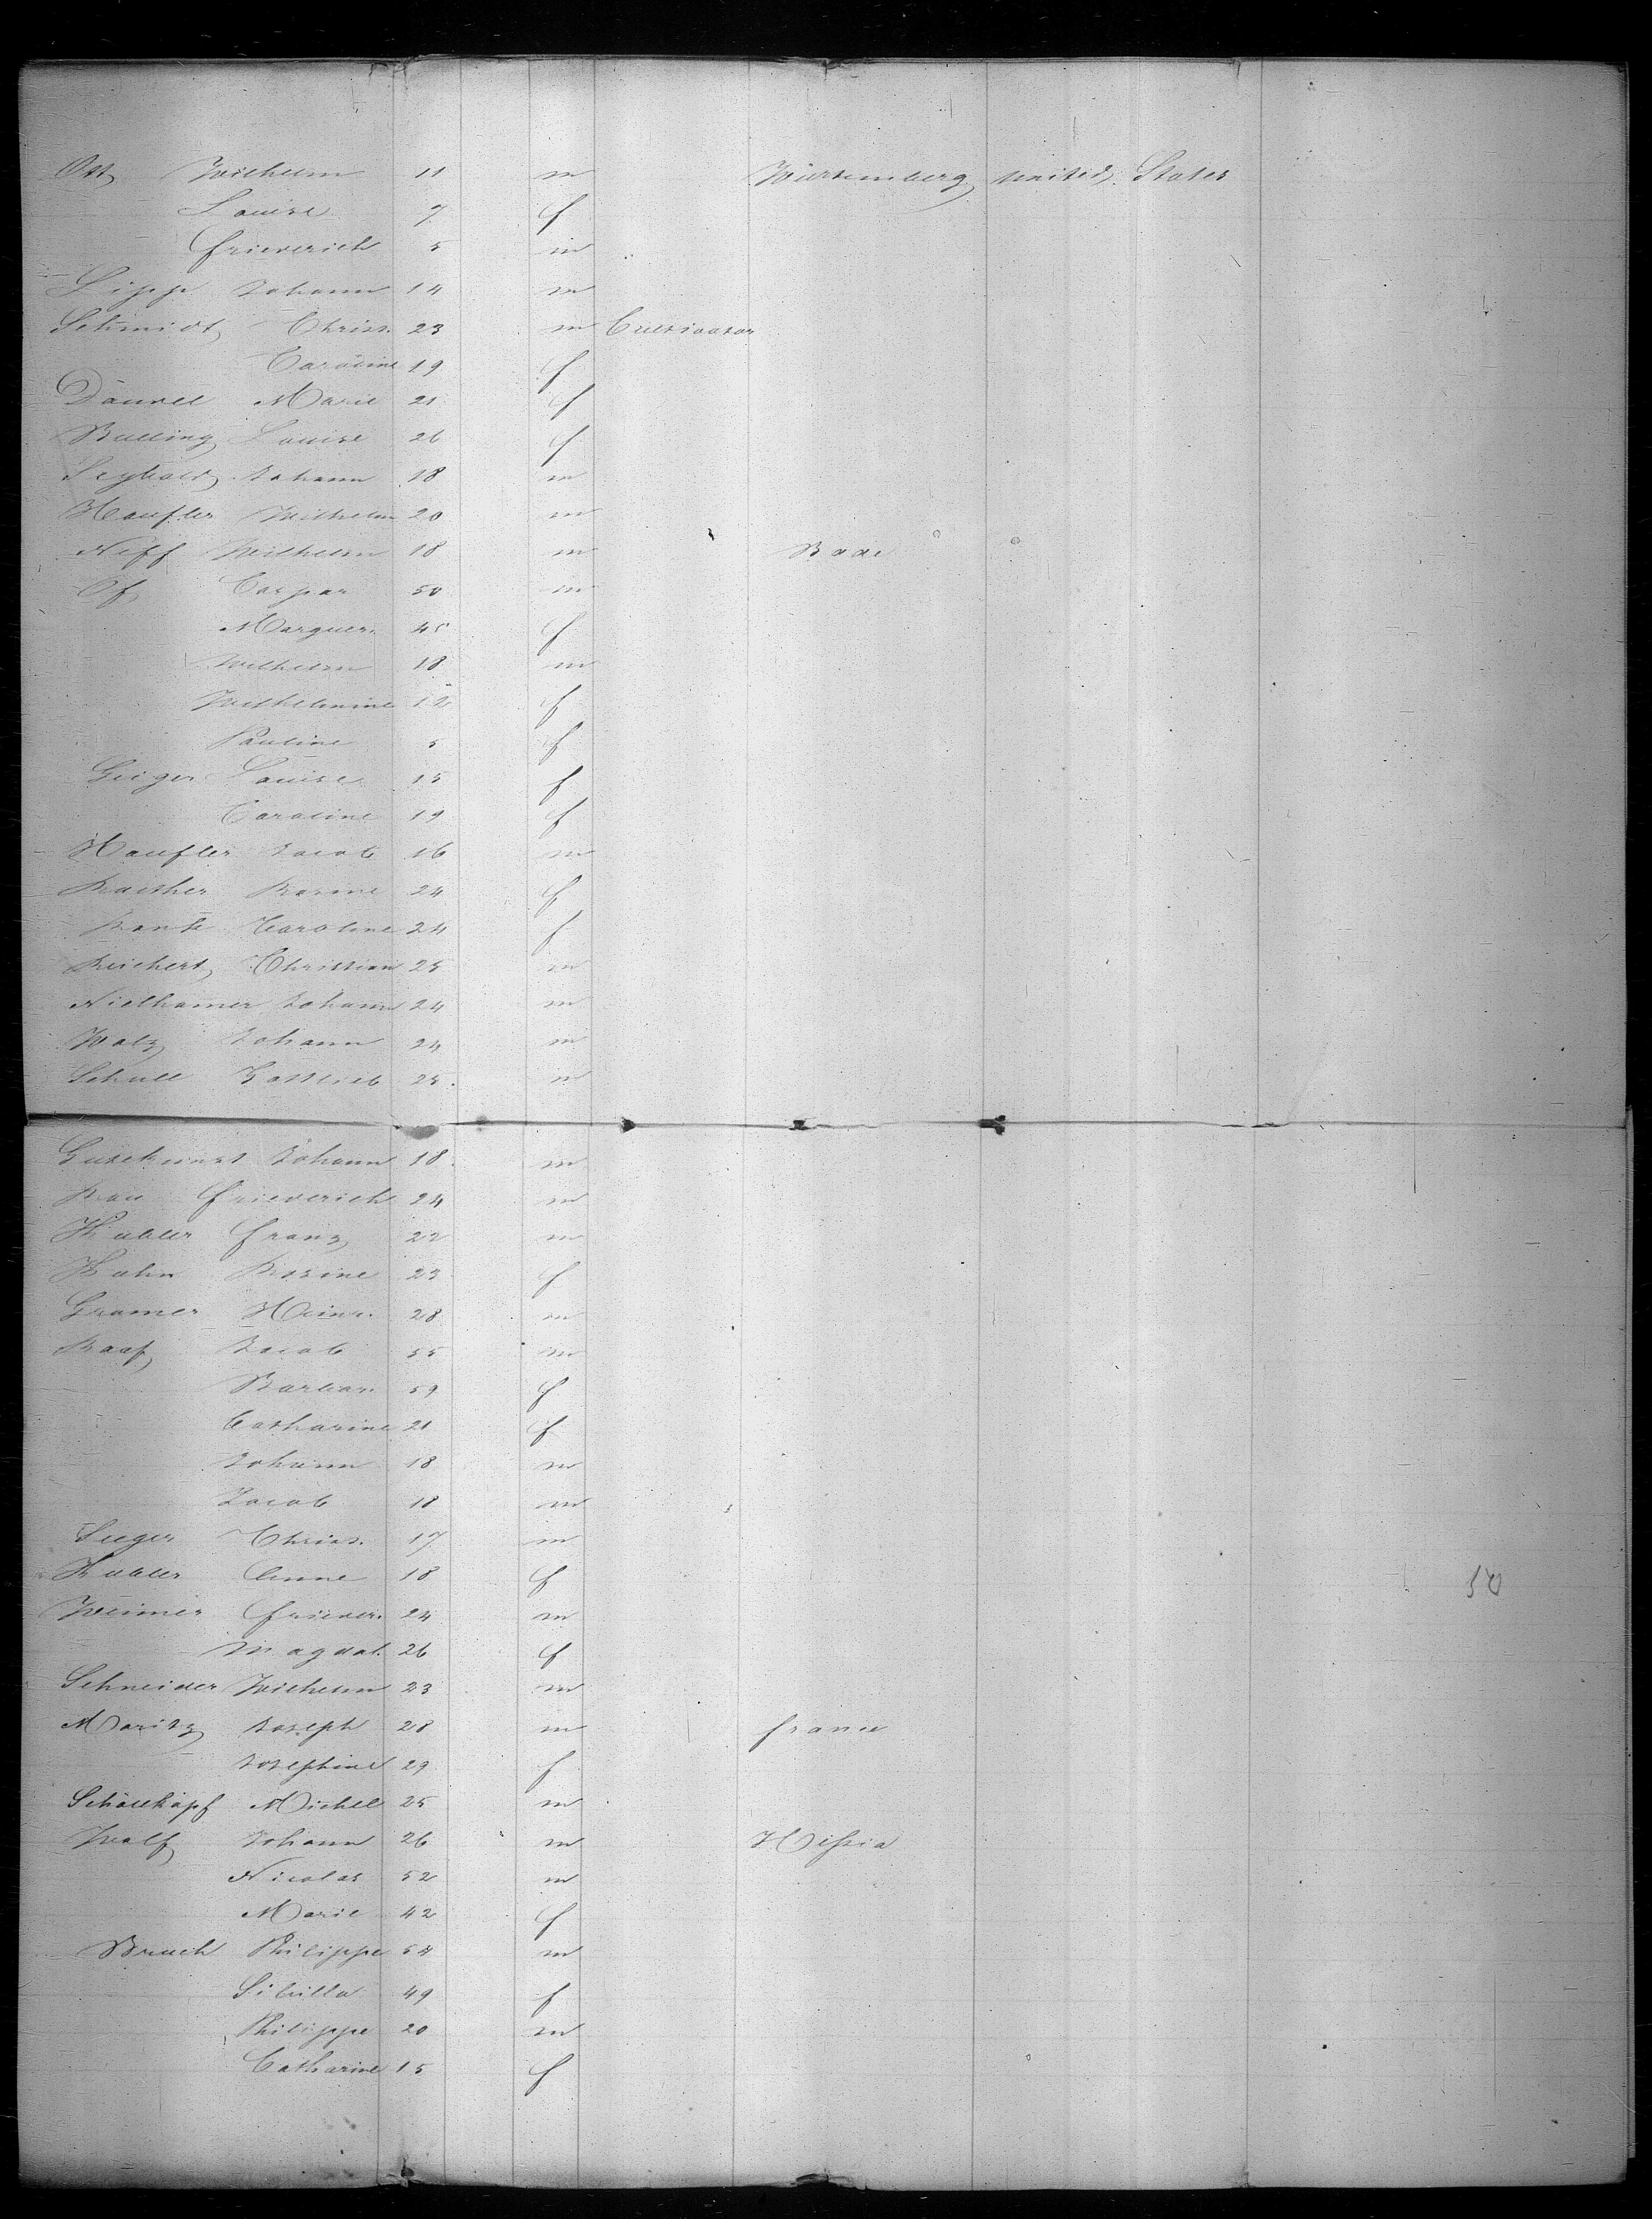 Ott Wilhelm 11 m Würtemberg United States
Louise 7 f
Friederich 5 m
Lipp Johann 14 m
Schmidt Christ. 23 m Cultivator
Caroline 19 f
Marie 21 f
Bulling Louise 26 f
Seybold Johann 18 m
Haufler Wilhelm 20 m
Neff Wilhelm 18 m Bade
Of Caspar 50 m
Marguer. 45 f
Wilhelm 18 m
Wilhelmine 12 f
Pauline 5 f
Geiger Louise 15 f
Caroline 19 f
Haufler Jacob 16 m
Raither Rosine 24 f
Caroline 24 f
Reichert Christian 25 m
Niethamer Johann 24 m
Walz Johann 24 m
Schull Gottlieb 25 m
Gutekunst Johann 18 m
Rau Friederich 24 m
Kubler Franz 22 m
Kuhn Rosine 23 f
Gramer Heinr. 28 m
Raaf Jacob 55 m
Barbar. 59 f
Catharine 21 f
Johann 18 m
Jacob 18 m
Seeger Christ. 17 m
Kubler Anne 18 f
Weimer Frieder. 24 m
Magdal. 26 f
Schneider Wilhelm 23 m
Moritz Joseph 28 m France
Josephine 29 f
Schöllkopf Michel 25 m
Wolf Johann 26 m Hessia
Nicolas 52 m
Marie 42 f
Bruch Philippe 54 m
Sibilla 49 f
Philippe 20 m
Catharine 15 f
50